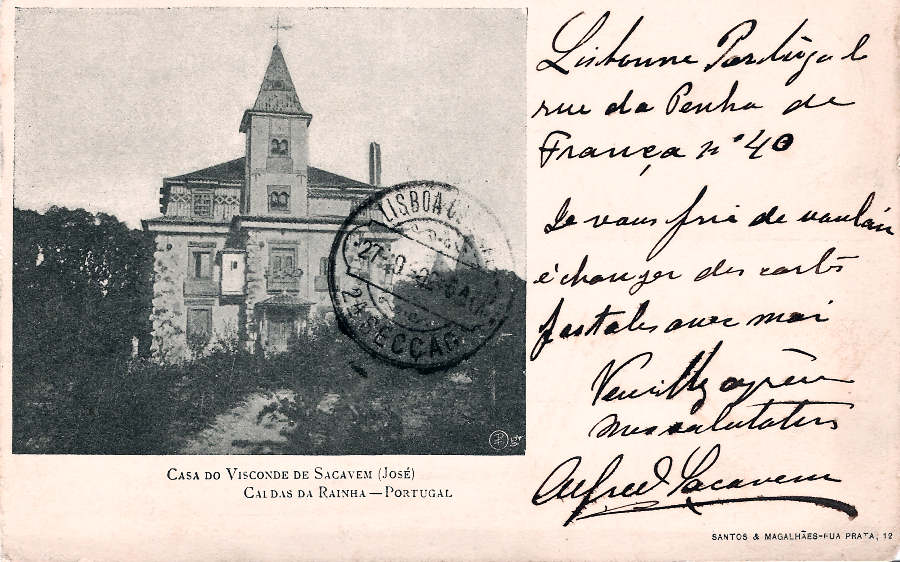 Lisbonne Portugal
rue da Penha de
França nº 40
Je vous prie de vouloir
échanger des cartes
postales avec moi
Veuillez agréer
mes salutations
Alfred Sacavem
LISBOA C.
27-
2ª SECÇÃO
CASA DO VISCONDE DE SACAVEM (JOSÉ)
CALDAS DA RAINHA—PORTUGAL
SANTOS & MAGALHÃES-RUA PRATA, 12